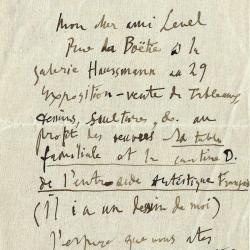 Mon cher ami Level
Rue la Boëtie à la
galerie Haussmann au 29
exposition-vente de Tableaux
dessins, sculptures &. au
profit des œuvres La table
familiale et la cantine D.
de l'entr aide Artistique Française
(Il i a un dessin de moi)
J'espere que vous